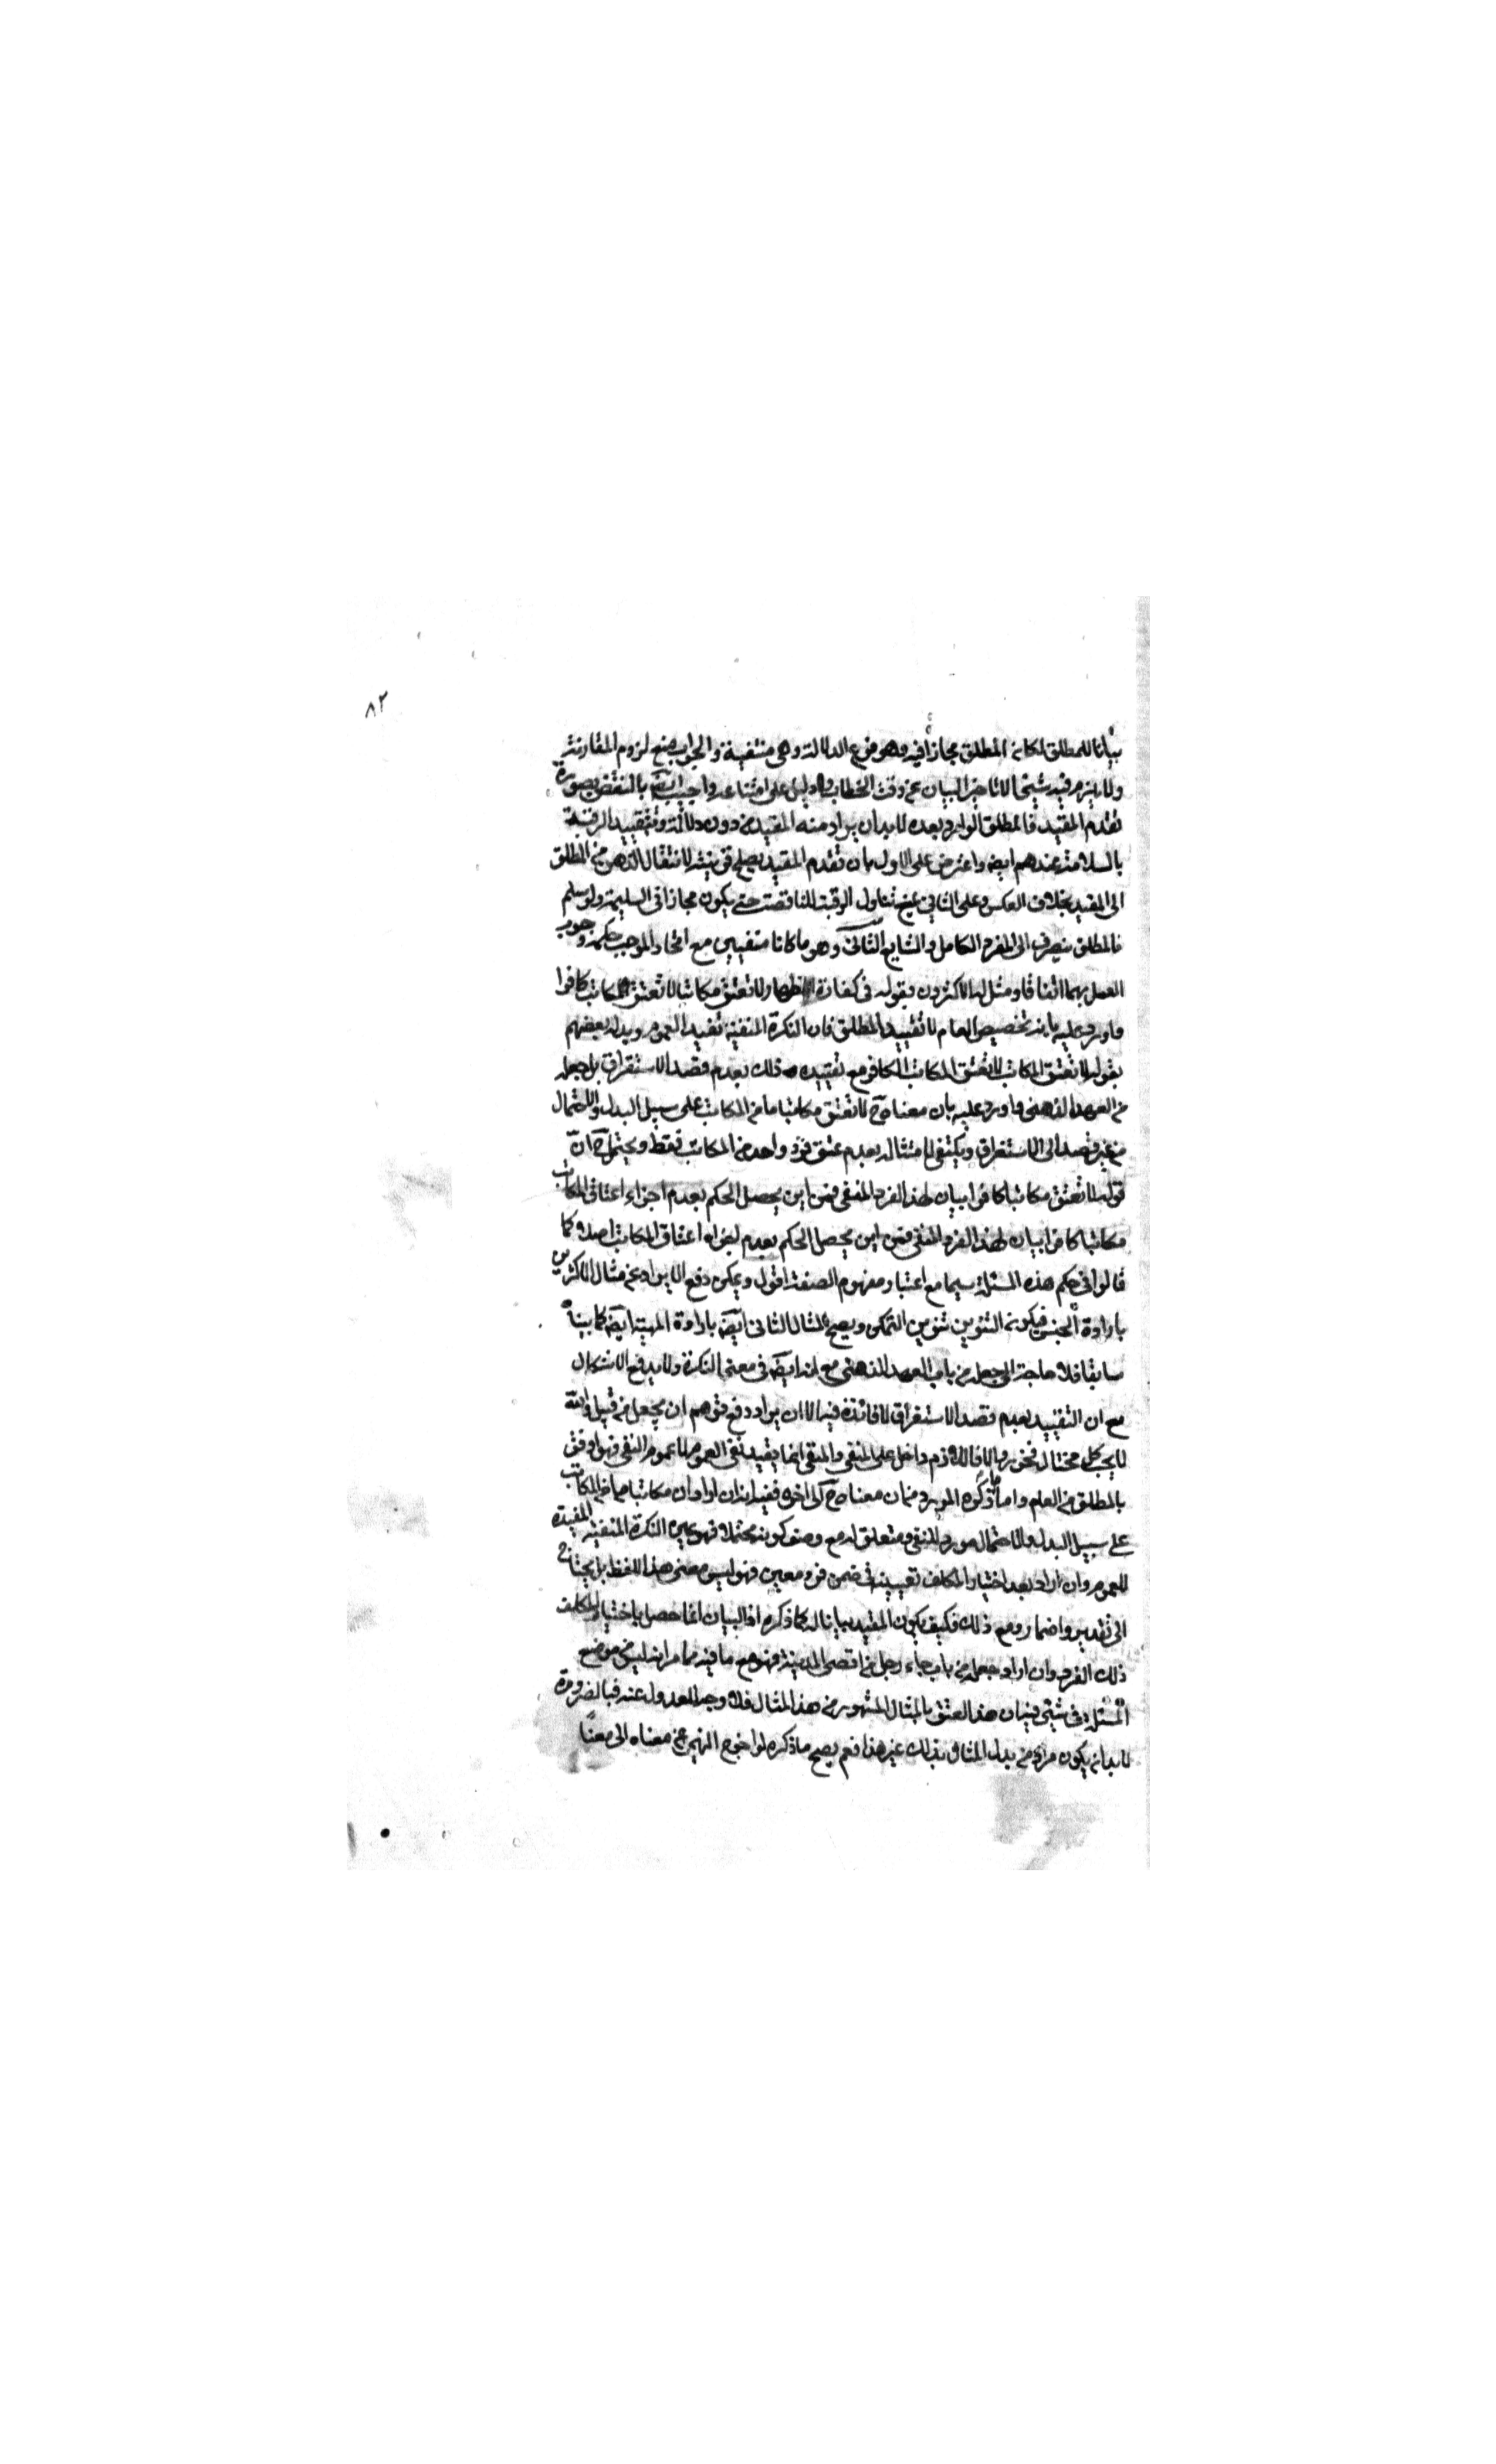 ٨٢
بيانا للمطلق لكان المطلق مجازا فيه وهو فرع الدلالة وهى منتفية والجواب منع لزوم المقارنة
ولا يلزم فيه شئ الا تاخير البيان عن وقت الخطاب ولا دليل على امتناعه واجيب ايضا بالنقض بصورة
تقدم المقيد فالمطلق الوارد بعده لا بد ان يراد منه المقيد من دون دلالة وبتقييد الرقبة
بالسلامة عندهم ايضا واعترض على الاول بان تقدم المقيد يصلح قرينة لانتقال الذهن من المطلق
الى المقيد بخلاف العكس وعلى الثاني بمنع تناول الرقبة للناقصة حتى يكون مجازا فى السليمة ولو سلم
فالمطلق ينصرف الى الفرد الكامل والشايع الثانى وهو ما كانا منفيين مع اتحاد الموجب حكمه وجوب
العمل بهما اتفاقا ومثل له الاكثرون بقوله فى كفارة الظهار لا تعتق مكاتبا لا تعتق مكاتبا كافرا
واورد عليه بانه تخصيص العام لا تقييد المطلق فان النكرة المنفية تفيد العموم وبدله بعضهم
بقوله لا تعتق المكاتب لا تعتق المكاتب الكافر مع تقييده ذلك بعدم قصد الاستغراق بل جعله
من العهد الذهنى واورد عليه بان معناه ح لا تعتق مكاتبا ما من المكاتب على سبيل البدل والاحتمال
من غير قصد الى الاستغراق ويكتفى لامتثاله بعدم عتق فرد واحد من المكاتب فقط ويحتمل ح ان
قوله لا تعتق مكاتبا كافرا بيان لهذا الفرد المنفى فمن اين يحصل الحكم بعدم اجزاء اعتاق المكاتب
مكاتبا كافرا بيان لهذا الفرد المنفى فمن اين يحصل الحكم بعدم اجزاء اعتاق المكاتب اصلا كما
قالوا فى حكم هذه المسئلة سيما مع اعتبار مفهوم الصفة اقول ويمكن دفع الايراد عن مثال الاكثرين
بارادة الجنس فيكون التنوين تنوين التمكن ويصح المثال الثانى ايضا بارادة المهية ايضا كما بيناه
سابقا فلا حاجة الى جعله من باب العهد الذهنى مع انه ايضا فى معنى النكرة ولا يدفع الاشكال
مع ان التقييد بعدم قصد الاستغراق لا فائدة فيه الا ان يراد دفع توهم ان يجعل من قبيل ان الله
لا يحب كل مختال فخور والا فاللام داخل على المنفى والمنفى انما يفيد نفى العموم لا عموم النفى فهو اوفق
بالمطلق من العام واما ما ذكره المورد من ان معناه ح الى اخره ففيه انه ان اراد ان مكاتبا ما من المكاتب
على سبيل البدل والاحتمال مورد للنفى ومتعلق له مع وصف كونه محتملا فهو عين النكرة المنفية المفيدة
للعموم وان اراد بعد اختيار المكلف تعيينه فى ضمن فرد معين فهو ليس معنى هذا اللفظ بل يحتاج
الى تقدير واضمار ومع ذلك فكيف يكون المقيد بيانا له كما ذكره اذ البيان انما حصل باختيار المكلف
ذلك الفرد وان اراد جعله من باب جاء رجل من اقصى المدينة فهو مع ما فيه مما مر انه ليس من موضع
المسئلة فى شئ فبيان هذا العتق بالمثال المشهور من هذا المثال فلا وجه للعدول عنه فبالضرورة
لا بد ان يكون مراد من بدل المثال بذلك غير هذا نعم يصح ما ذكره لو اخرج النهى عن معناه الى معنا